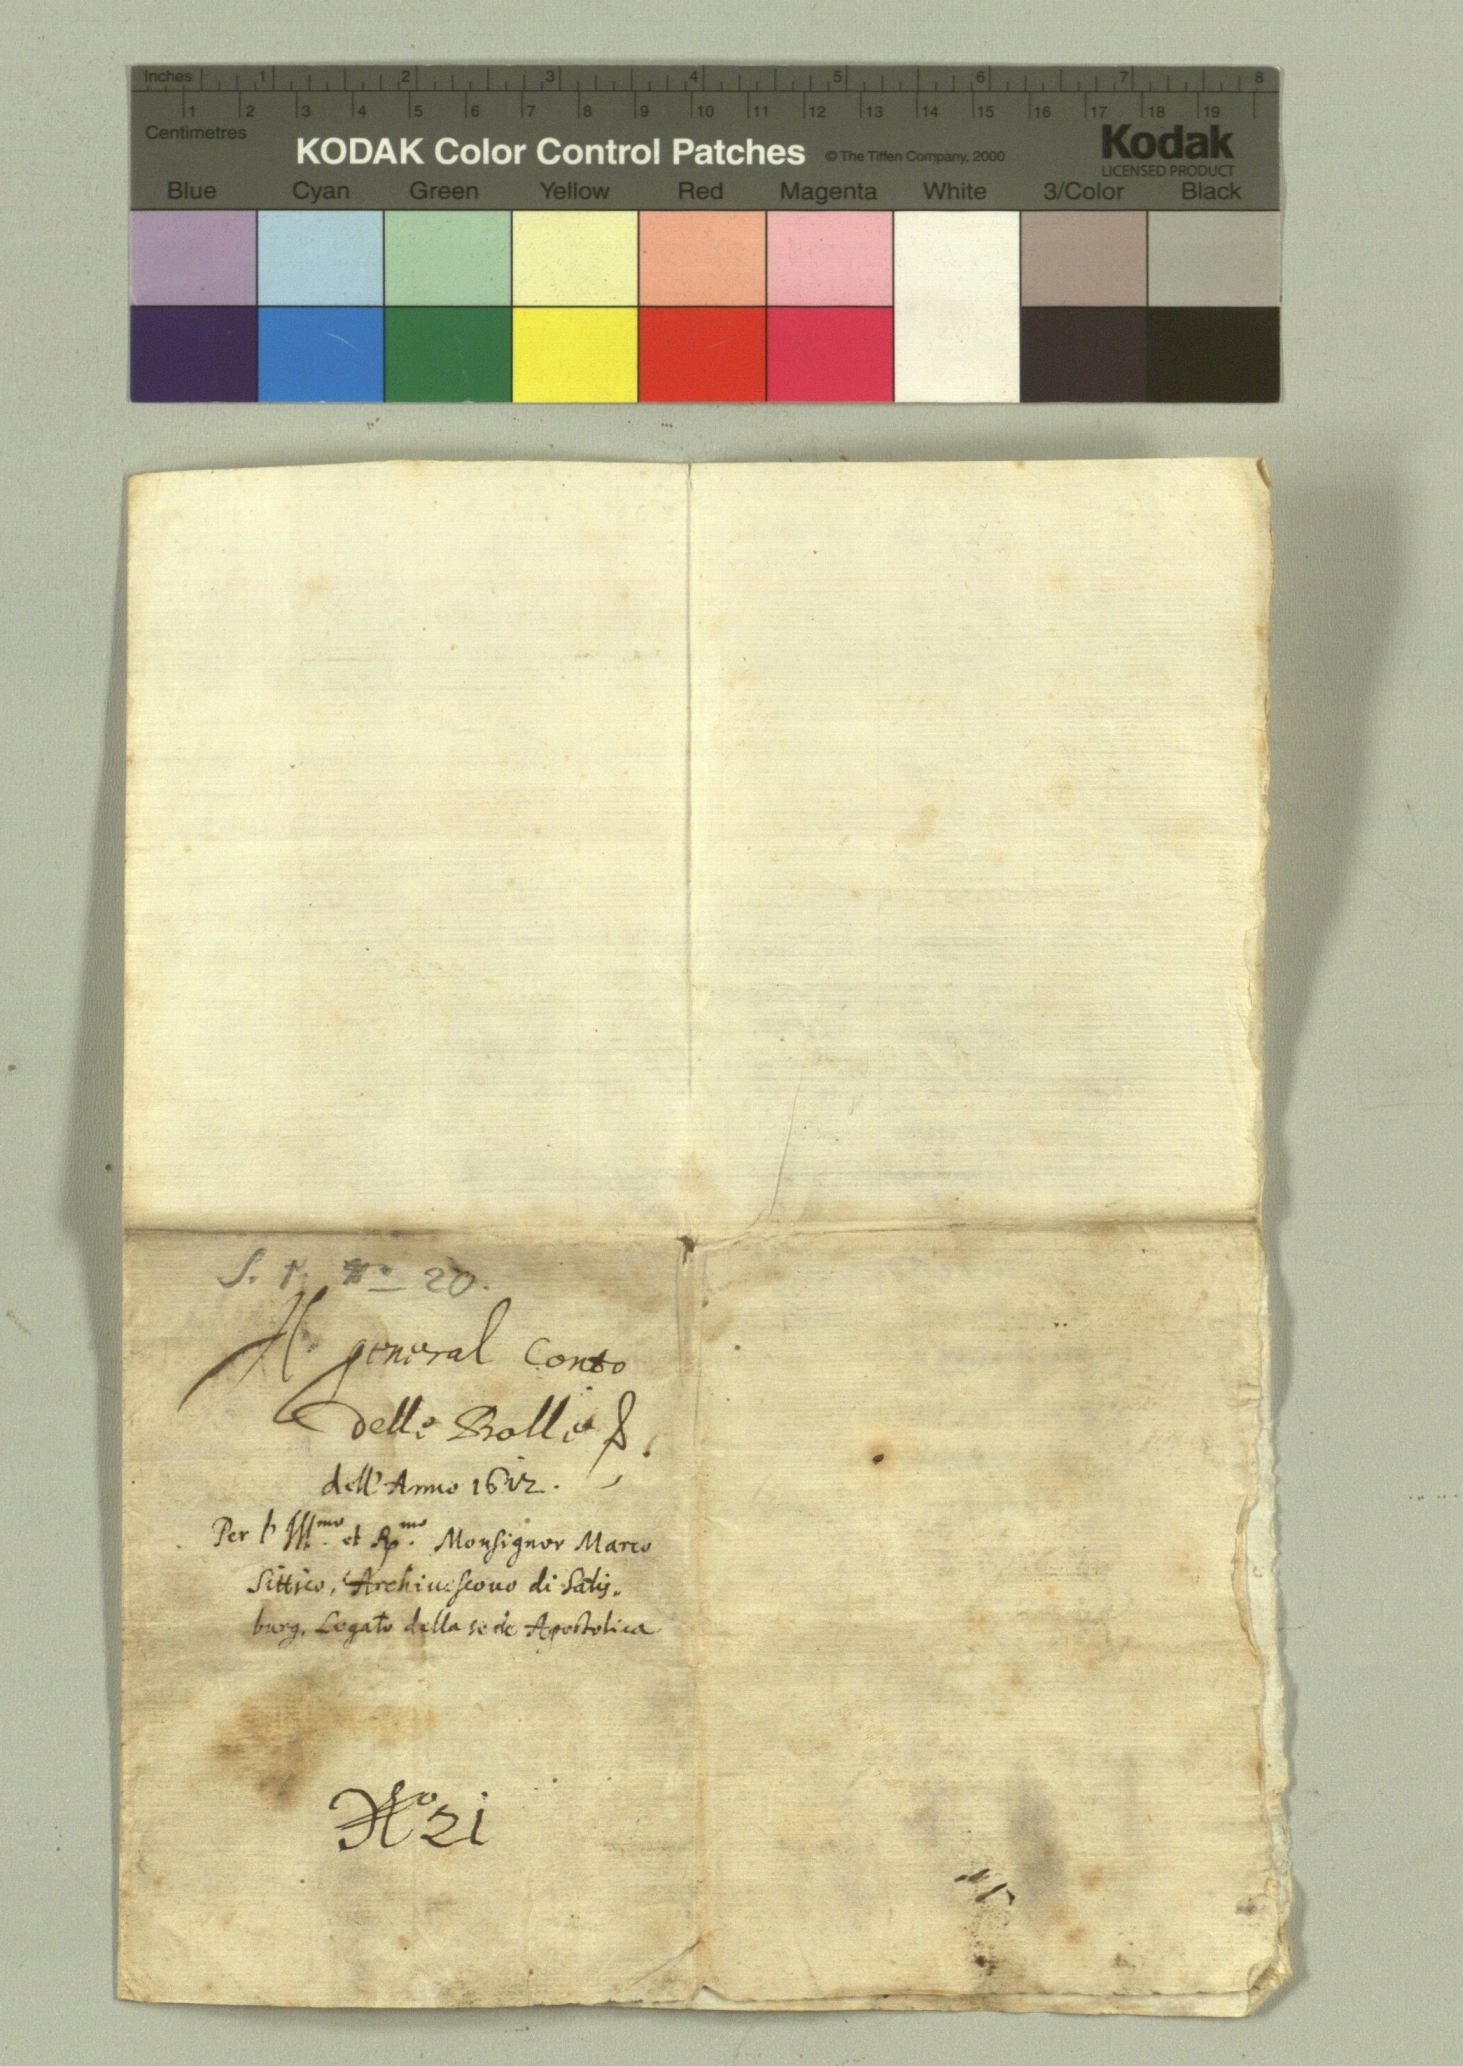 Inches 1 2 3 4 5 6 7 8
1 2 3 4 5 6 7 8 9 10 11 12 13 14 15 16 17 18 19
Centimetres
KODAK Color Control Patches © The Tiffen Company, 2000 Kodak
LICENSED PRODUCT
Blue Cyan Green Yellow Red Magenta White 3/Color Black
S. 1. No 20.
Il general Conto
delle Bolle
dell' Anno 1612.
Per l' Ill.mo et R.mo Monsignor Marco
Sittico, Archiuescouo di Salis,,
burg, Legato della sede Apostolica
No 21